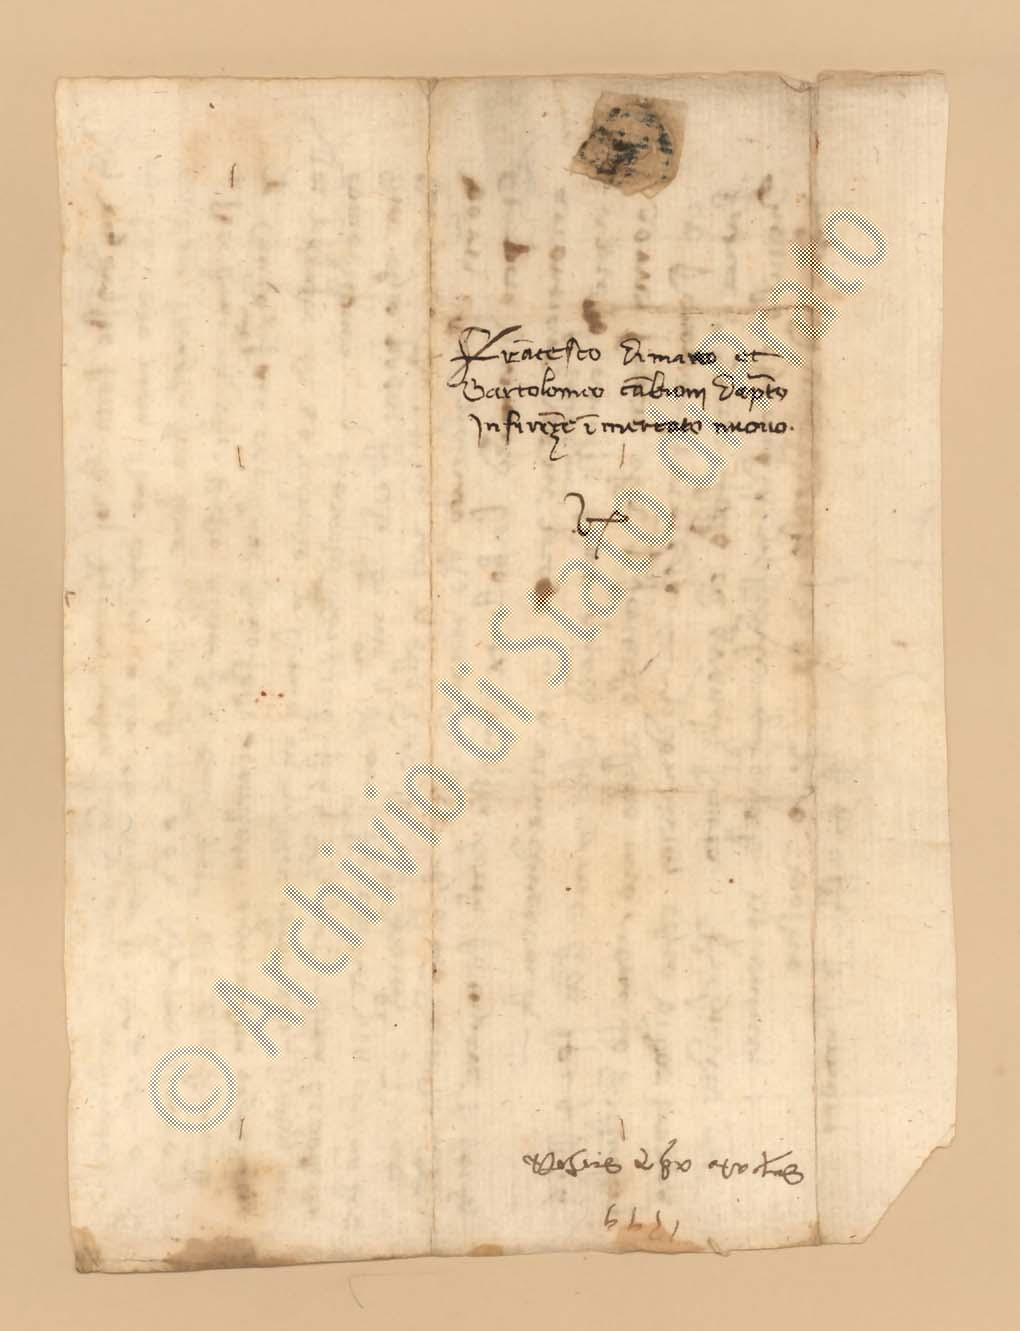 Francesco dimarco et
Bartolomeo cābioni daprato
In firenze ī mercato nuovo.
1399
© Archivio di Stato di Prato